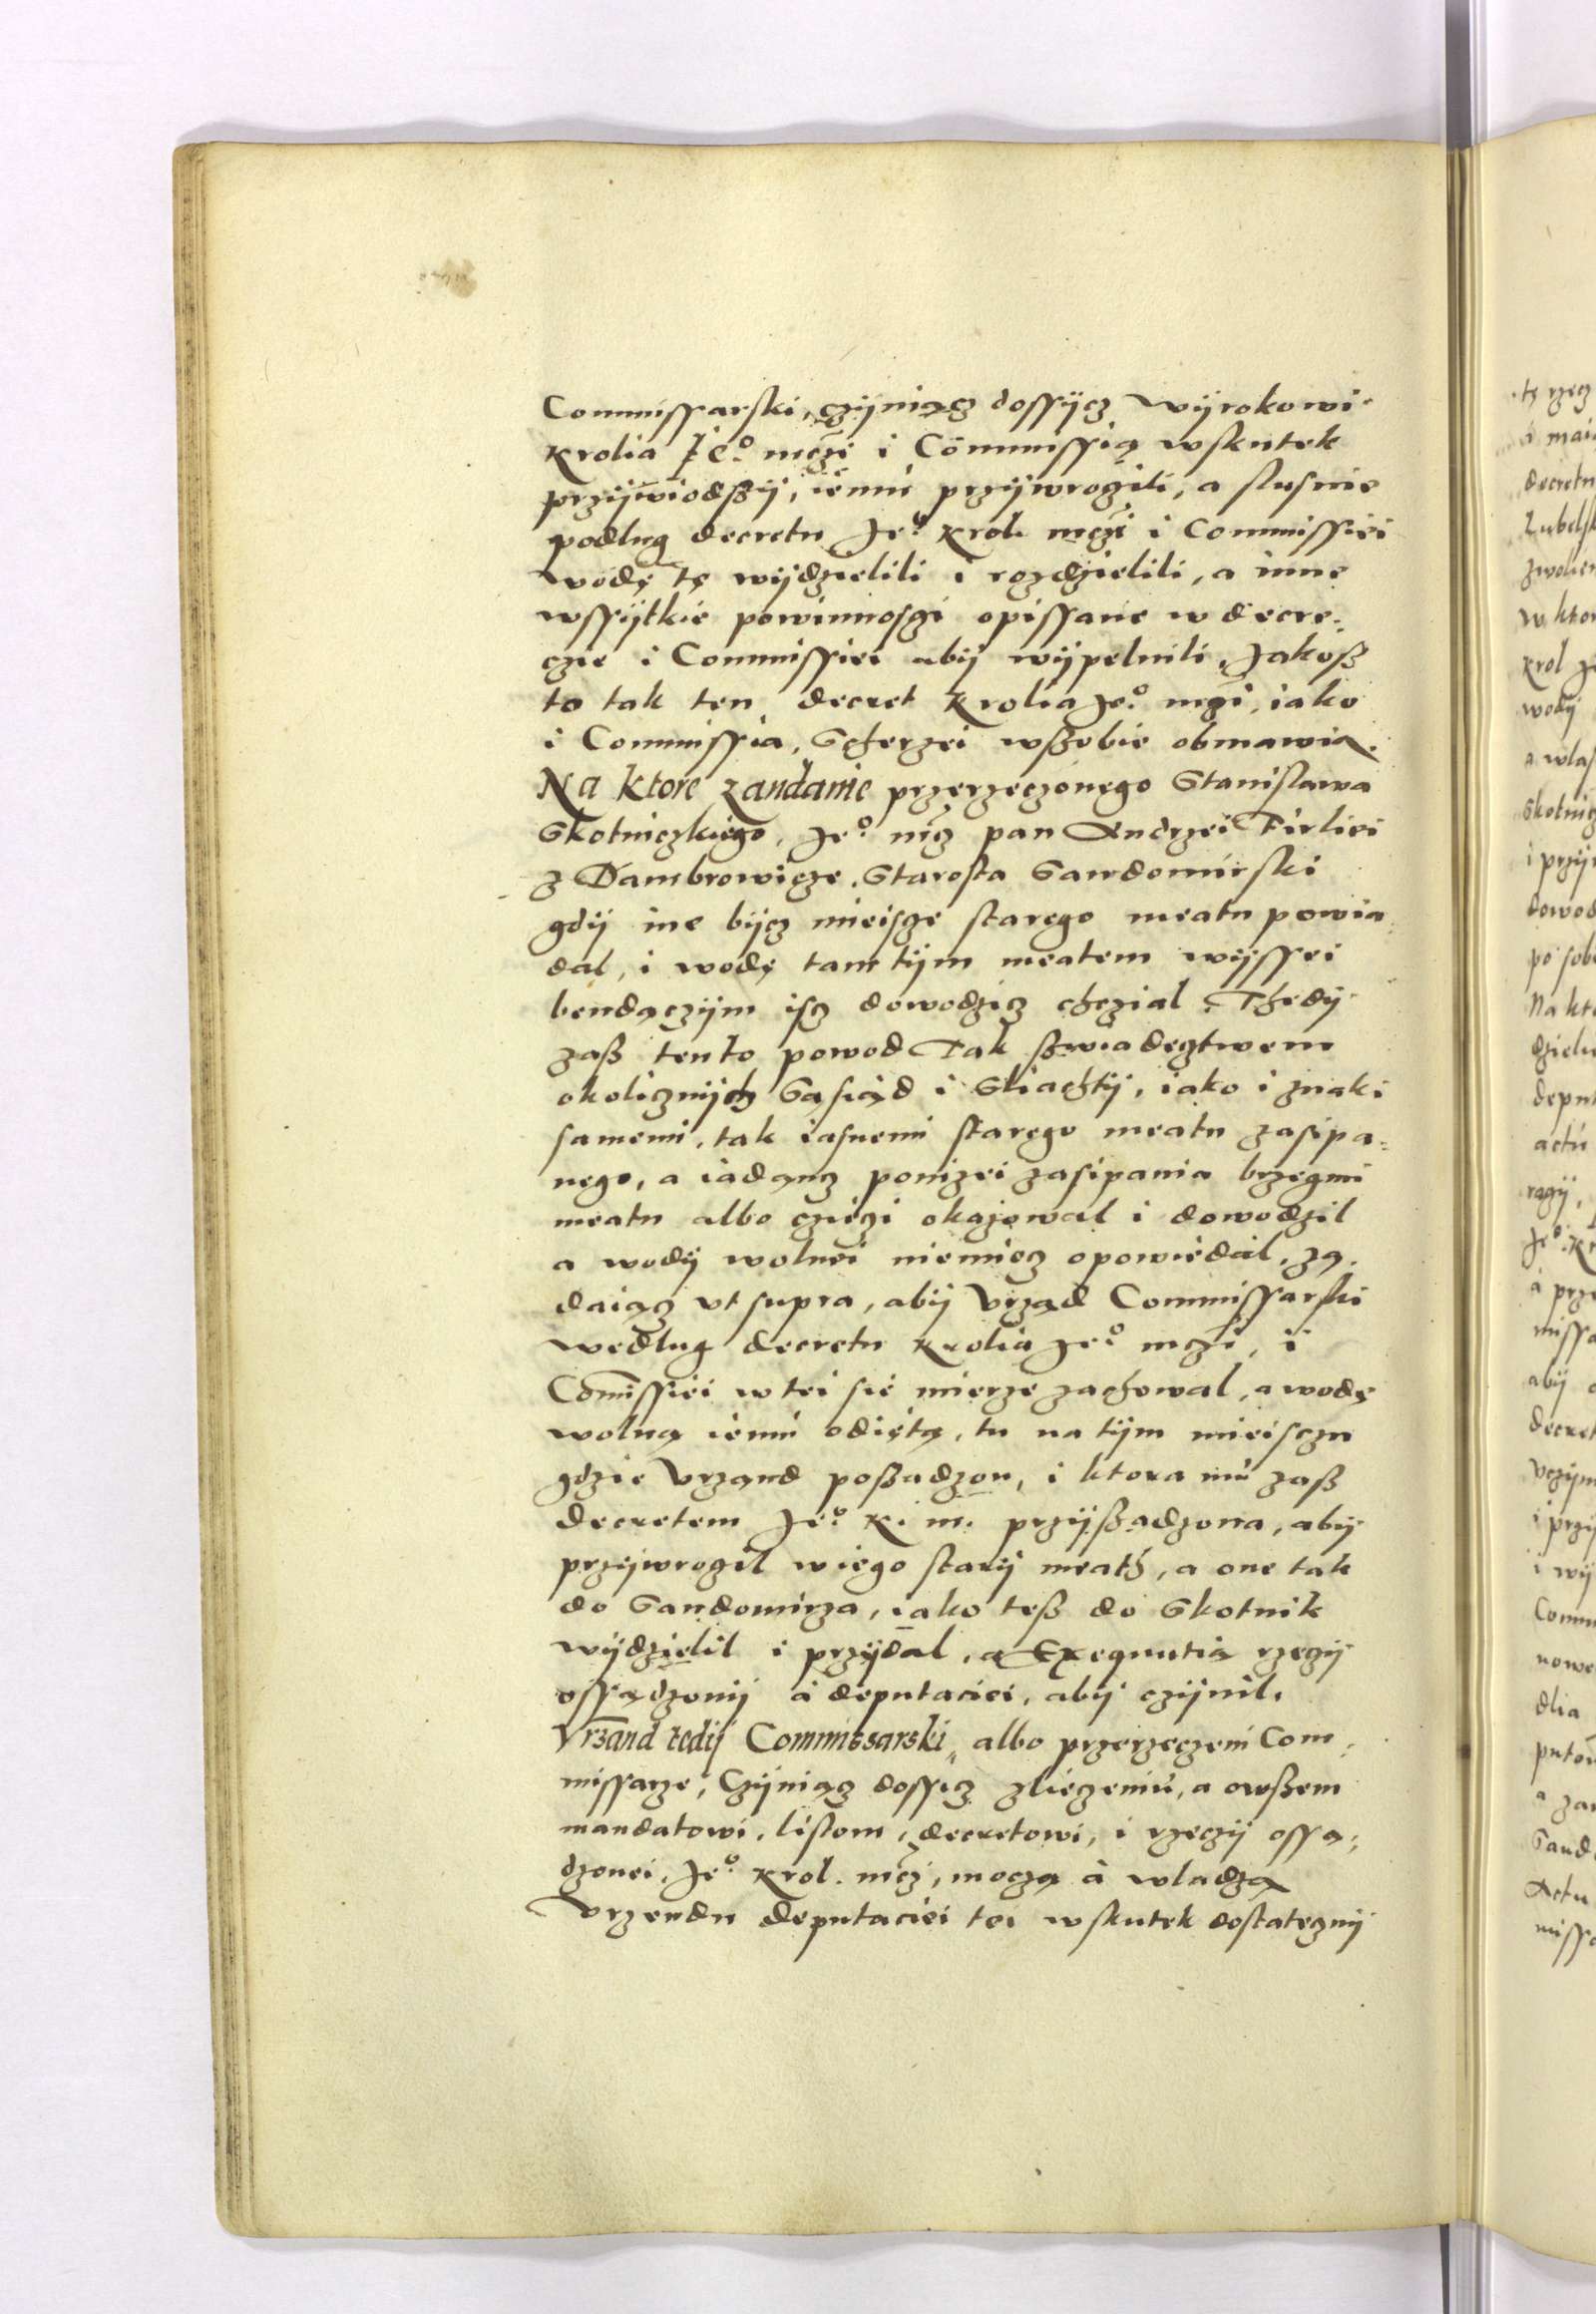 Commissarski, czÿniącz dossÿcz wÿrokowi
krolia Jeº mczi i Cōmmissią wskutek
przÿwiodszÿ, iemu przÿwrozili, a slusnie
podlug decretu Jeº krol. mczi i Commissiei
wodę tę wÿdzielili i rozdzielili, a inne
wssÿtkie powinnosczi opissane w decre:
czie i Commissiei abÿ wÿpelnili, Jakoß
to tak ten decret krolia Jeº mczi, iako
i Commissia, Scherzei wßobie obmawia.
Na ktore zandanie przerzeczonego Stanislawa
Skotniczkiego, Jeº micz pan Andrzei Firliei
z Dambrowicze. Starosta Sandomirski
gdÿ ine bÿcz mieisze starego meatu powia:
dal, i wodę tam tÿm meatem wÿssei
bendączÿm iscz dowodzicz chczial. Thedÿ
zaß tento powod Tak ßwiadecztwem
okolicznÿch Sąsiad i Sliachtÿ, iako i znaki
samemi, tak iasnemi starego meatu zasipa:
nego, a iadącz ponizei zasipania brzegmi
meatu albo cziezi okazowal i dowodzil
a wodÿ wolnei niemiecz opowiedal, zą:
daiącz vt supra, abÿ Vrząd Commissarski
wedlug decretu krolia Jeº mczi, i
Cōmissiei w tei sie mierze zachowal, a wodę
wolną iemu odiętą, tu na tÿm mieisczu
gdzie Vrzand poßadzon, i ktora mu zaß
decretem Jeº k. m. przÿßądzona, abÿ
przÿwrozil w iego starÿ meath, a one tak
do Sandomirza, iako teß do Skotnik
wÿdzielil i przÿdal, a Exequutią rzeczÿ
ossądzonÿ a deputaciei, abÿ czÿnil.
Vrzand tedÿ Commissarski, albo przerzeczeni Com:
missarze, Czÿniącz dossicz zlieczeniu, a owßem
mandatowi, listom, decretowi, i rzeczÿ ossą:
dzonei, Jeº krol. mczi, moczą a wladzą
Vrzendu deputaciei tei w skutek dostatecznÿ